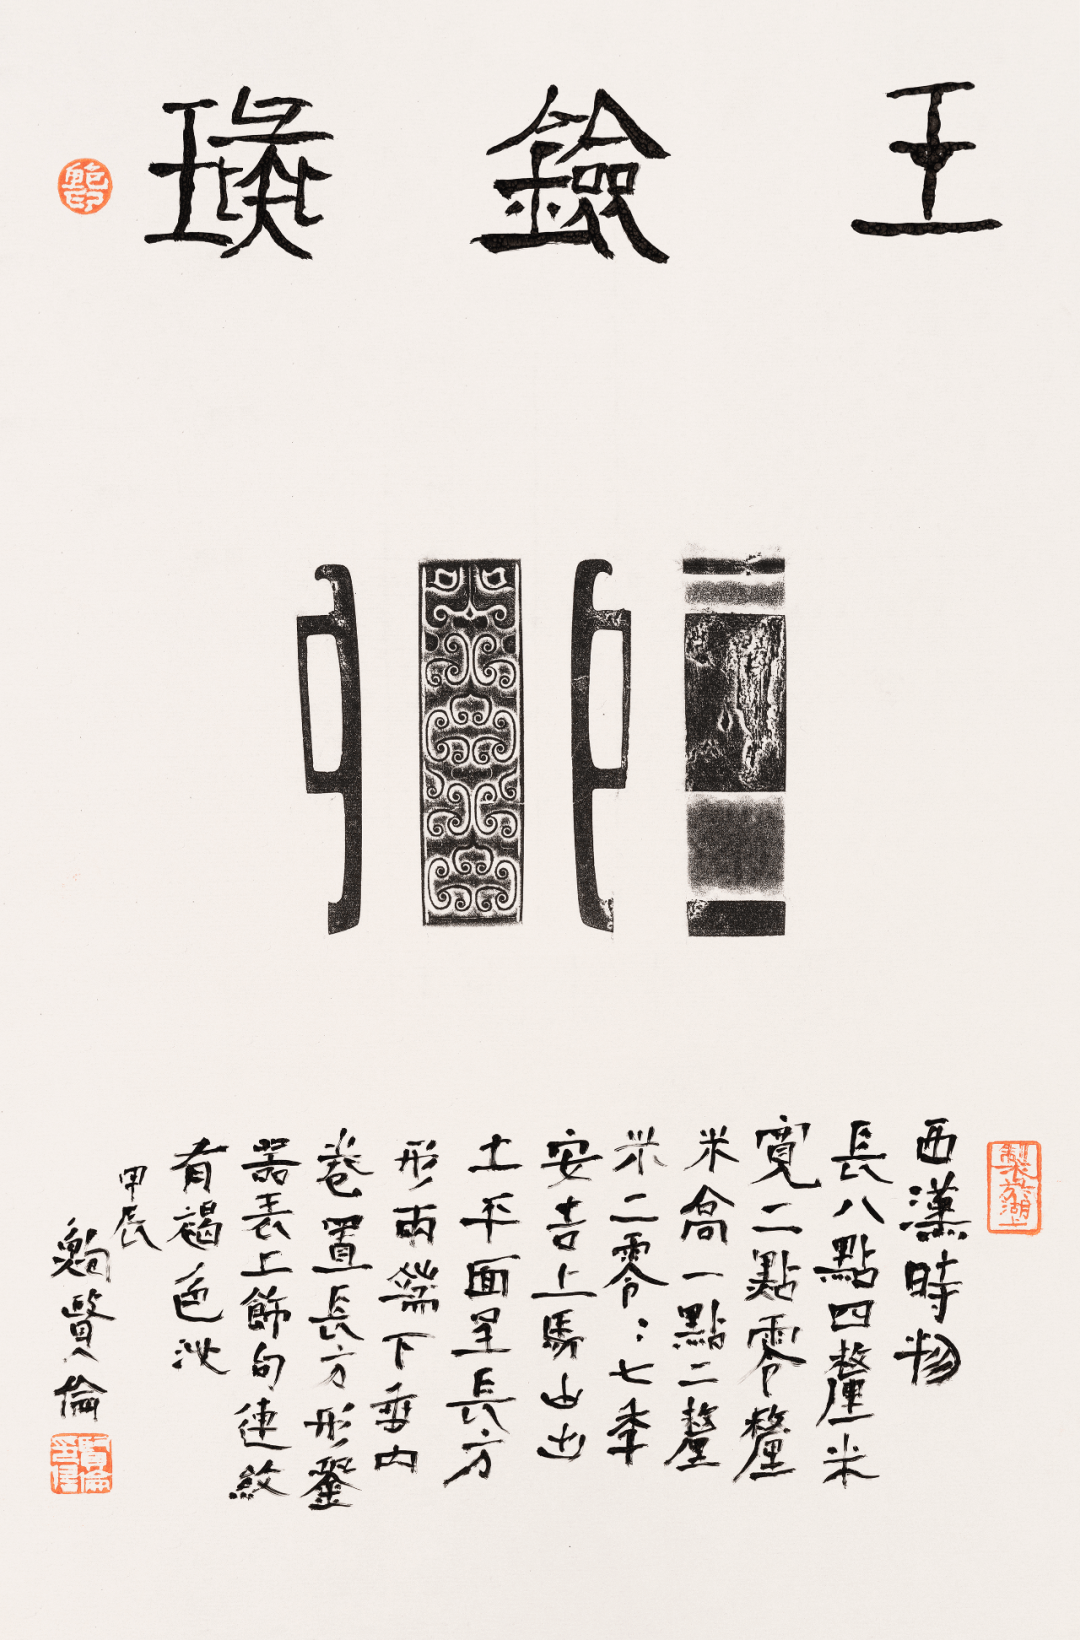 玉鐱璏
鮑印
製於湖上
西漢時物
長八點四釐米
寬二點零釐
米高一點二釐
米二零：七秊
安吉上馬山出
土平面呈長方
形兩端下垂內
卷置長方形銎
器表上飾勾連紋
有褐色沁
甲辰
鮑賢倫